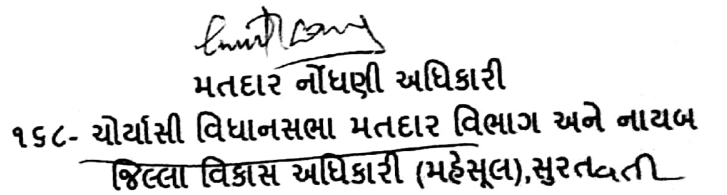 મતદાર નોંધણી અધિકારી
૧૬૮- ચોર્યાસી વિધાનસભા મતદાર વિભાગ અને નાયબ
જિલ્લા વિકાસ અધિકારી (મહેસૂલ),સુરતવતી